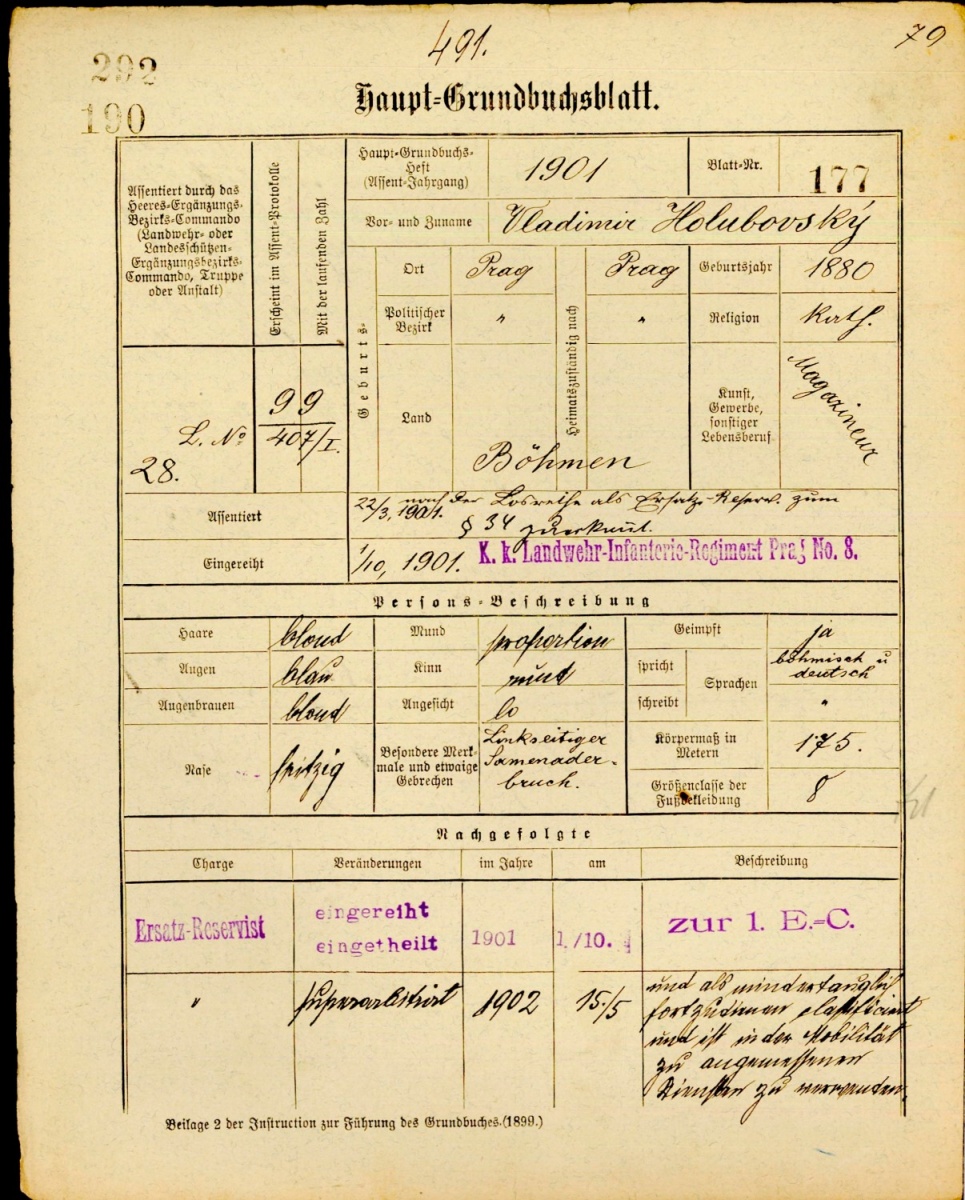 491.
79
292
190
Haupt-Grundbuchsblatt.
Assentiert durch das
Heeres-Ergänzungs-
Bezirks-Commando
(Landwehr- oder
Landesschützen-
Ergänzungsbezirks-
Commando, Truppe
oder Anstalt)
Erscheint im Assent-Protokolle
Mit der laufenden Zahl
Haupt-Grundbuchs-
Heft
(Assent-Jahrgang)
1901
Blatt-Nr.
177
Vor- und Zuname
Vladimir Holubovský
Geburts-
Ort
Prag
Heimatszuständig nach
Prag
Geburtsjahr
1880
Politischer
Bezirk
"
"
Religion
Kath.
Land
Böhmen
Kunst,
Gewerbe,
sonstiger
Lebensberuf
Magazineur
L. No
28.
99
407/I.
Assentiert
22/3, 1901. nach der Losreihe als Ersatz-Reserv. zum
§ 34 zuerkannt.
Eingereiht
1/10, 1901. K. k. Landwehr-Infanterie-Regiment Prag No. 8.
Persons-Beschreibung
Haare
blond
Mund
proportion
Geimpft
ja
Augen
blau
Kinn
rund
spricht
Sprachen
böhmisch u
deutsch
Augenbrauen
blond
Angesicht
schreibt
"
Nase
spitzig
Besondere Merk-
male und etwaige
Gebrechen
Linkseitiger
Samenader-
bruch.
Körpermaß in
Metern
175.
Größenclasse der
Fußbekleidung
8
Nachgefolgte
Charge
Veränderungen
im Jahre
am
Beschreibung
Ersatz-Reservist
eingereiht
eingetheilt
1901
1./10.
zur 1. E.-C.
"
superarbitrirt
1902
15./5
und als mindertauglich
fortzudienen classificiert
und ist in der Mobilität
zu angemessenen
Diensten zu verwenden.
Beilage 2 der Instruction zur Führung des Grundbuches.(1899.)